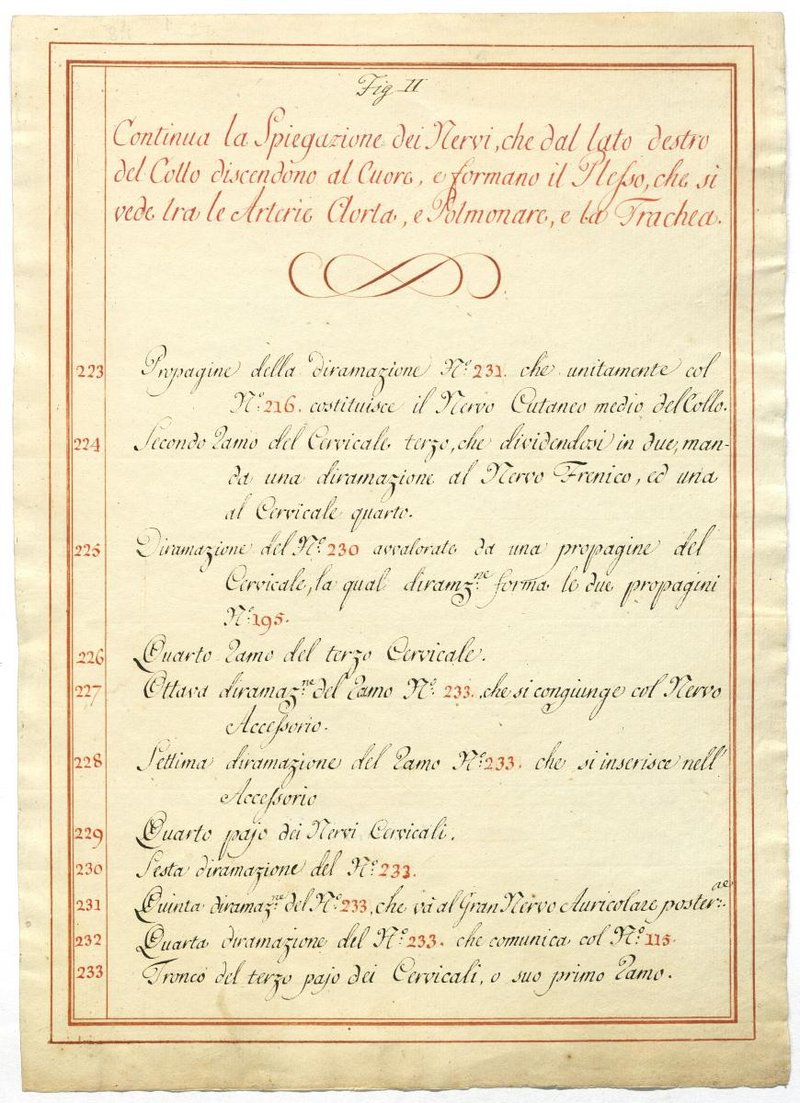 Fig II
Continua la Spiegazione dei Nervi, che dal lato destro
del Collo discendono al Cuore, e formano il Plesso, che si
vede tra le Arterie Aorta, e Polmonare, e la Trachea.
223 Propagine della diramazione N.º 231. che unitamente col
N.º 216. costituisce il Nervo Cutaneo medio del Collo.
224 Secondo Ramo del Cervicale terzo, che dividendosi in due, man-
da una diramazione al Nervo Frenico, ed una
al Cervicale quarto.
225 Diramazione del N.º 230 avvalorate da una propagine del
Cervicale, la qual diramz.ne forma le due propagini
N.º 195.
226 Quarto Ramo del terzo Cervicale.
227 Ottava diramaz.ne del Ramo N.º 233. che si congiunge col Nervo
Accessorio.
228 Settima diramazione del Ramo N.º 233. che si inserisce nell'
Accessorio
229 Quarto pajo dei Nervi Cervicali.
230 Sesta diramazione del N.º 233.
231 Quinta diramaz.ne del N.º 233, che và al Gran Nervo Auricolare poster:ae
232 Quarta diramazione del N.º 233. che comunica col N.º 115.
233 Tronco del terzo pajo dei Cervicali, o suo primo Ramo.